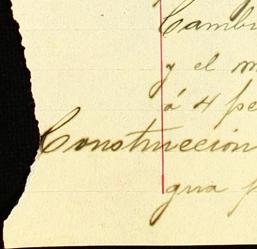 Cambi
y el m
á 4 pe
Construcción
gua p